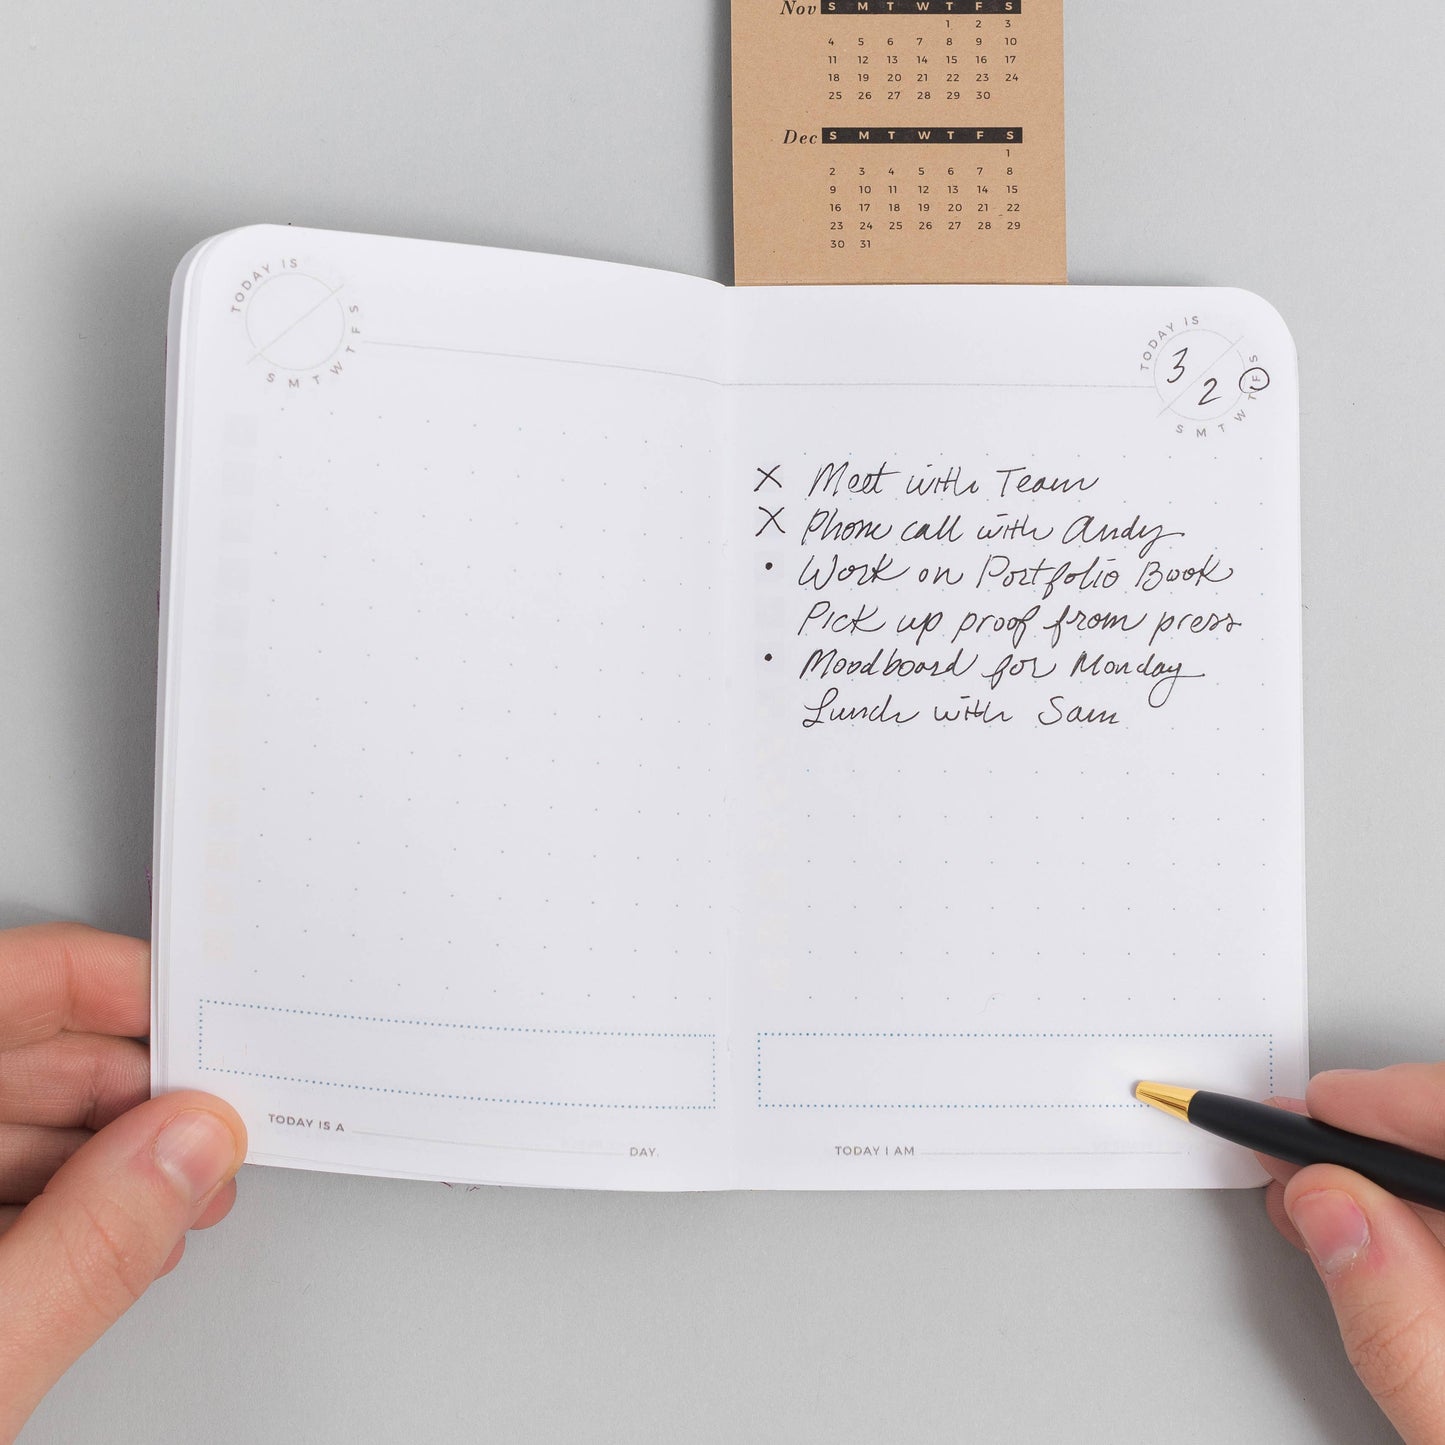 Nov S M T W T F S
1 2 3
4 5 6 7 8 9 10
11 12 13 14 15 16 17
18 19 20 21 22 23 24
25 26 27 28 29 30
Dec S M T W T F S
1
2 3 4 5 6 7 8
9 10 11 12 13 14 15
16 17 18 19 20 21 22
23 24 25 26 27 28 29
30 31
TODAY IS
S M T W T F S
TODAY IS
3
2
S M T W T F S
X Meet with Team
X Phone call with Andy
• Work on Portfolio Book
Pick up proof from press
• Moodboard for Monday
Lunch with Sam
TODAY IS A DAY.
TODAY I AM